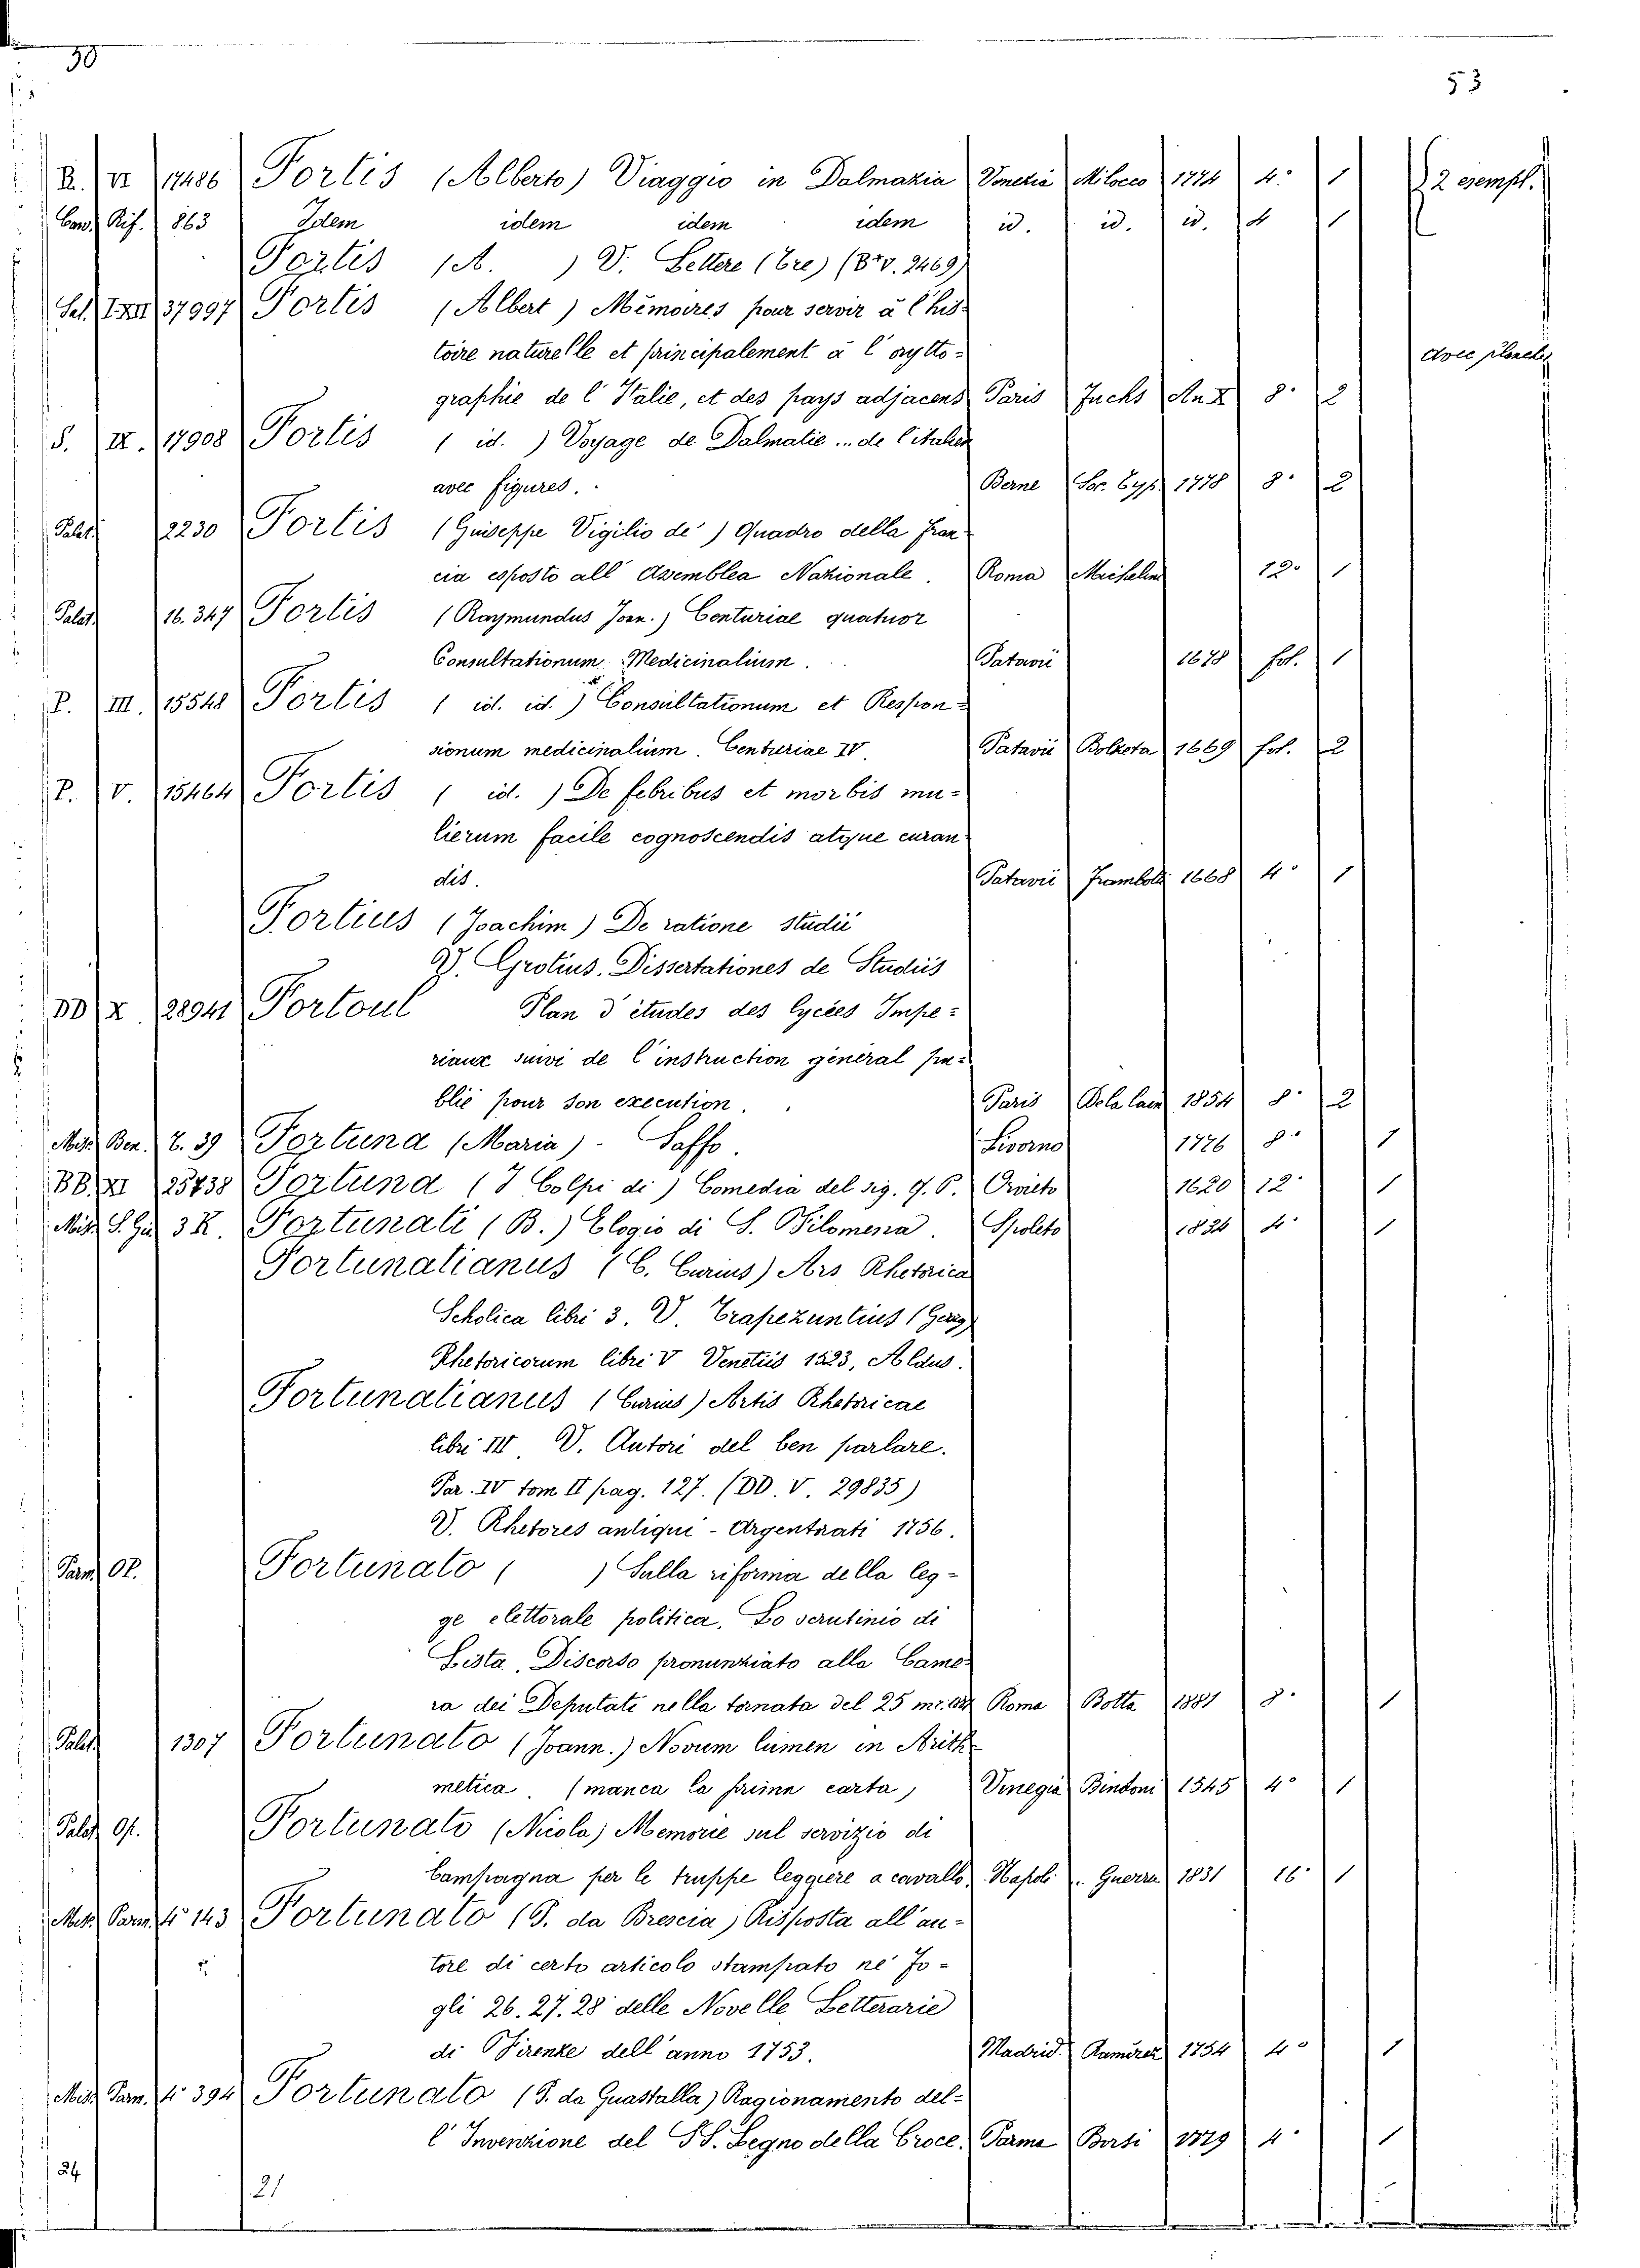 50
53
B. VI 17486 Fortis (Alberto) Viaggio in Dalmazia Venezia Milocco 1774 4.º 1 2 esempl.
Rif. 863 Idem idem idem idem id. id. id. 4 1
Fortis (A. ) V. Lettere (Tre) 2469)
37997 Fortis (Albert) Mémoires pour servir à l'his-
toire naturelle et principalement à l'orytto- avec planches
graphie de l'Italie, et des pays adjacens Paris Fuchs An X 8.º 2
S. IX. 17908 Fortis ( id. ) Voyage de Dalmatie ... de l'italien
avec figures. Berne Soc. Typ. 1778 8.º 2
Palat. 2230 Fortis (Guiseppe Vigilio de') Quadro della Fran-
cia esposto all'Assemblea Nazionale. Roma 12.º 1
Palat. 16.347 Fortis (Raymundus Joan.) Centuriae quatuor
Consultationum Medicinalium. Patavii 1678 fol. 1
P. III. 15548 Fortis ( id. id. ) Consultationum et Respon-
sionum medicinalium. Centuriae IV. Patavii Bolzeta 1669 fol. 2
P. V. 15464 Fortis ( id. ) De febribus et morbis mu-
lierum facile cognoscendis atque curan-
dis. Patavii Frambotti 1668 4º 1
Fortius (Joachim) De ratione studii
V. Grotius. Dissertationes de Studiis
DD X 28941 Fortoul Plan d'études des lycées Impe-
riaux suivi de l'instruction général pu-
blié pour son execution. Paris Delalain 1854 8.º 2
Misc. Ben. T. 39 Fortuna (Maria) - Saffo. Livorno 1776 8.º 1
BB. XI 25738 Fortuna (I Colpi di) Comedia del sig. G. P. Orvieto 1620 12.º 1
Misc. S. Gius. 3 K Fortunati (B.) Elogio di S. Filomena. Spoleto 1834 4.º 1
Fortunatianus (C. Curius) Ars Rhetorica
Scholica libri 3. V. Trapezuntius (Georg.)
Rhetoricorum libri V Venetiis 1523, Aldus.
Fortunatianus (Curius) Artis Rhetoricae
libri III. V. Autori del ben parlare.
Par. IV tom II pag. 127. (DD. V. 29835)
V. Rhetores antiqui - Argentrati 1756.
Parm. OP. Fortunato ( ) Sulla riforma della leg-
ge elettorale politica. Lo scrutinio di
Lista. Discorso pronunziato alla Came-
ra dei Deputati nella tornata del 25 Roma Botta 1881 8.º 1
Palat. 1307 Fortunato (Joann.) Novum lumen in Arith-
metica. (manca la prima carta) Vinegia Bindoni 1545 4º 1
Palat. Op. Fortunato (Nicola) Memorie sul servizio di
Campagna per le truppe leggiere a cavallo. Napoli Guerra 1831 16.º 1
Misc. Parm. 4º 143 Fortunato (P. da Brescia) Risposta all'au-
tore di certo articolo stampato ne' fo-
gli 26. 27. 28 delle Novelle Letterarie
di Firenze dell'anno 1753. Madrid. Ramirez 1754 4º 1
Misc. Parm. 4º 394 Fortunato (P. da Guastalla) Ragionamento del-
l'Invenzione del SS. Legno della Croce. Parma Borsi 1729 4.º 1
24
21